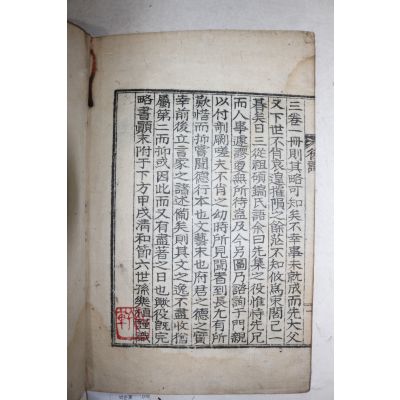 三卷一冊則其略可知矣不幸事未就成而先大父
又下世不肖哀遑摧隕之餘茫不知攸爲束閣已一
朞矣日三從祖碩鎬氏語余曰先集之役惟恃先兄
而人事遽謬便無所待盍及今另圖乃諮詢于門親
以付剞劂嗟夫不肖之幼時所見聞書到長尤有所
歎惜而抑嘗聞德行本也文藝末也府君之德之實
幸前後立言家之諸述備矣則其文之逸不盡收猶
屬第二而抑或因此而又有盡著之日也歟役旣完
略書顚末附于下方甲戌淸和節六世孫樂 謹識
後識